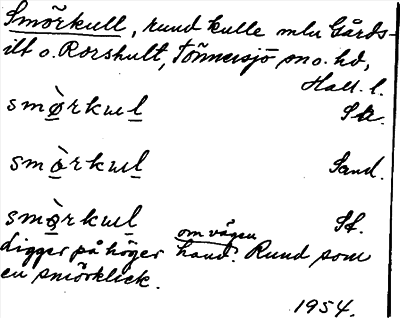 Smörkull, rund kulle mln Gårds-
ilt o. Rorshult, Tönnersjö sn o. hd,
Hall. l.
smὸrkul Sk.
smὸrkul Sand.
smὸrkul Sf.
Ligger på höger hand om vägen. Rund som
en smörklick.
1954.